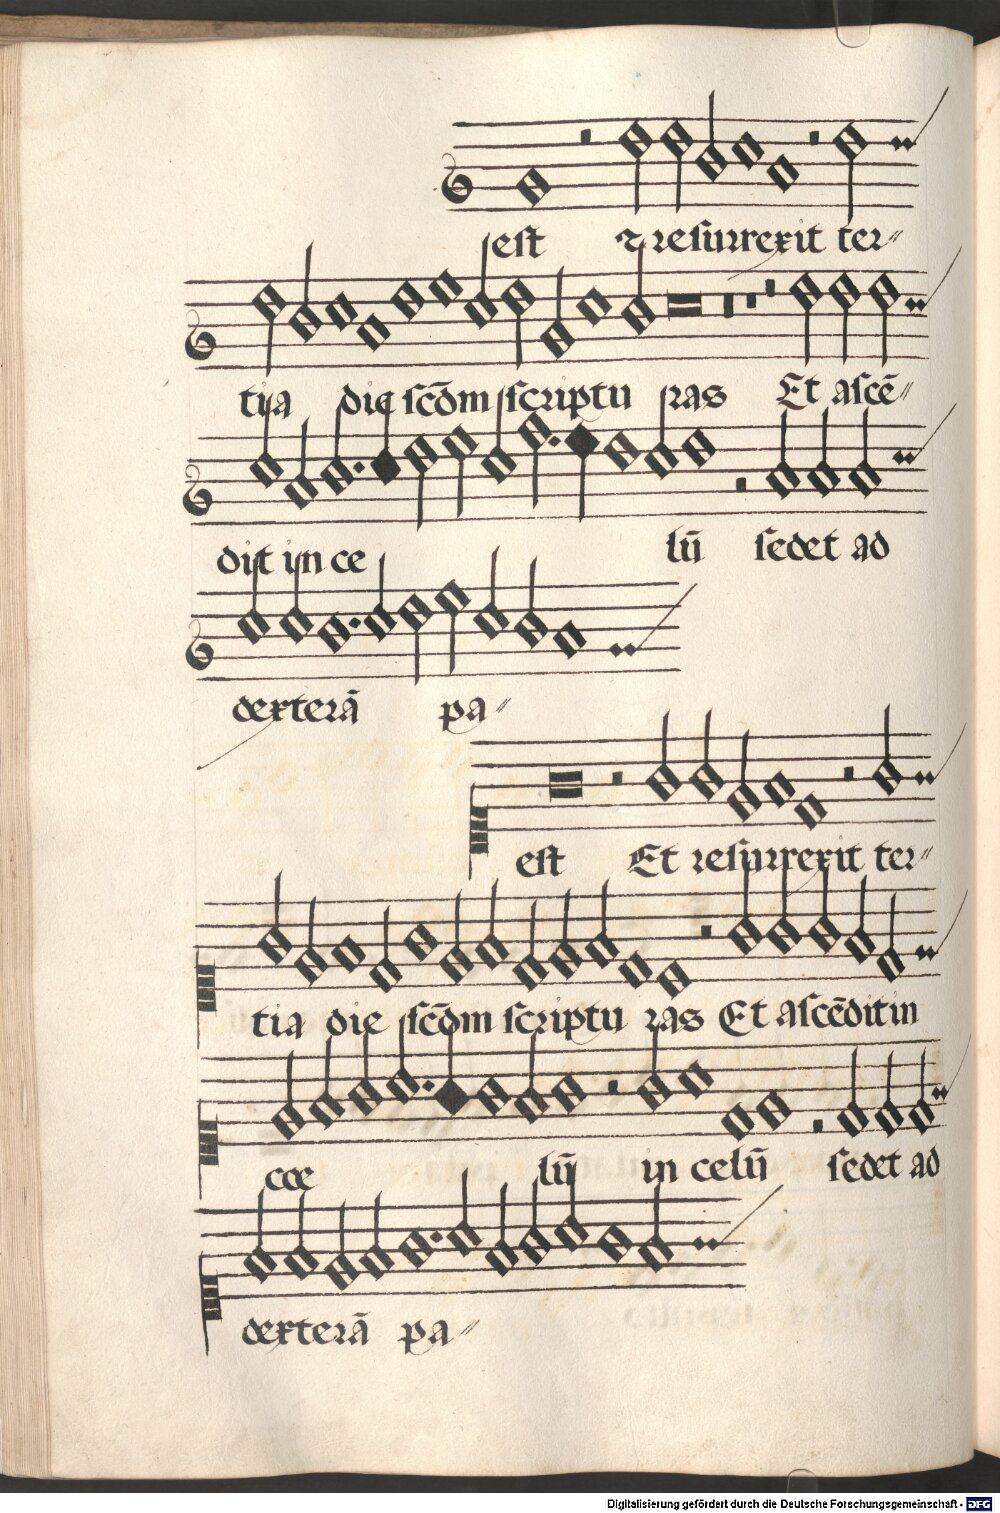 est ⁊ resurrexit ter⸗
tia die scd̄m scriptu ras Et ascē⸗
dit in ce lū sedet ad
dexterā pa⸗
est Et resurrexit ter⸗
tia die scd̄m scriptu ras Et ascēdit in
coe lū in celū sedet ad
dexterā pa⸗
Digitalisierung gefördert durch die Deutsche Forschungsgemeinschaft - DFG